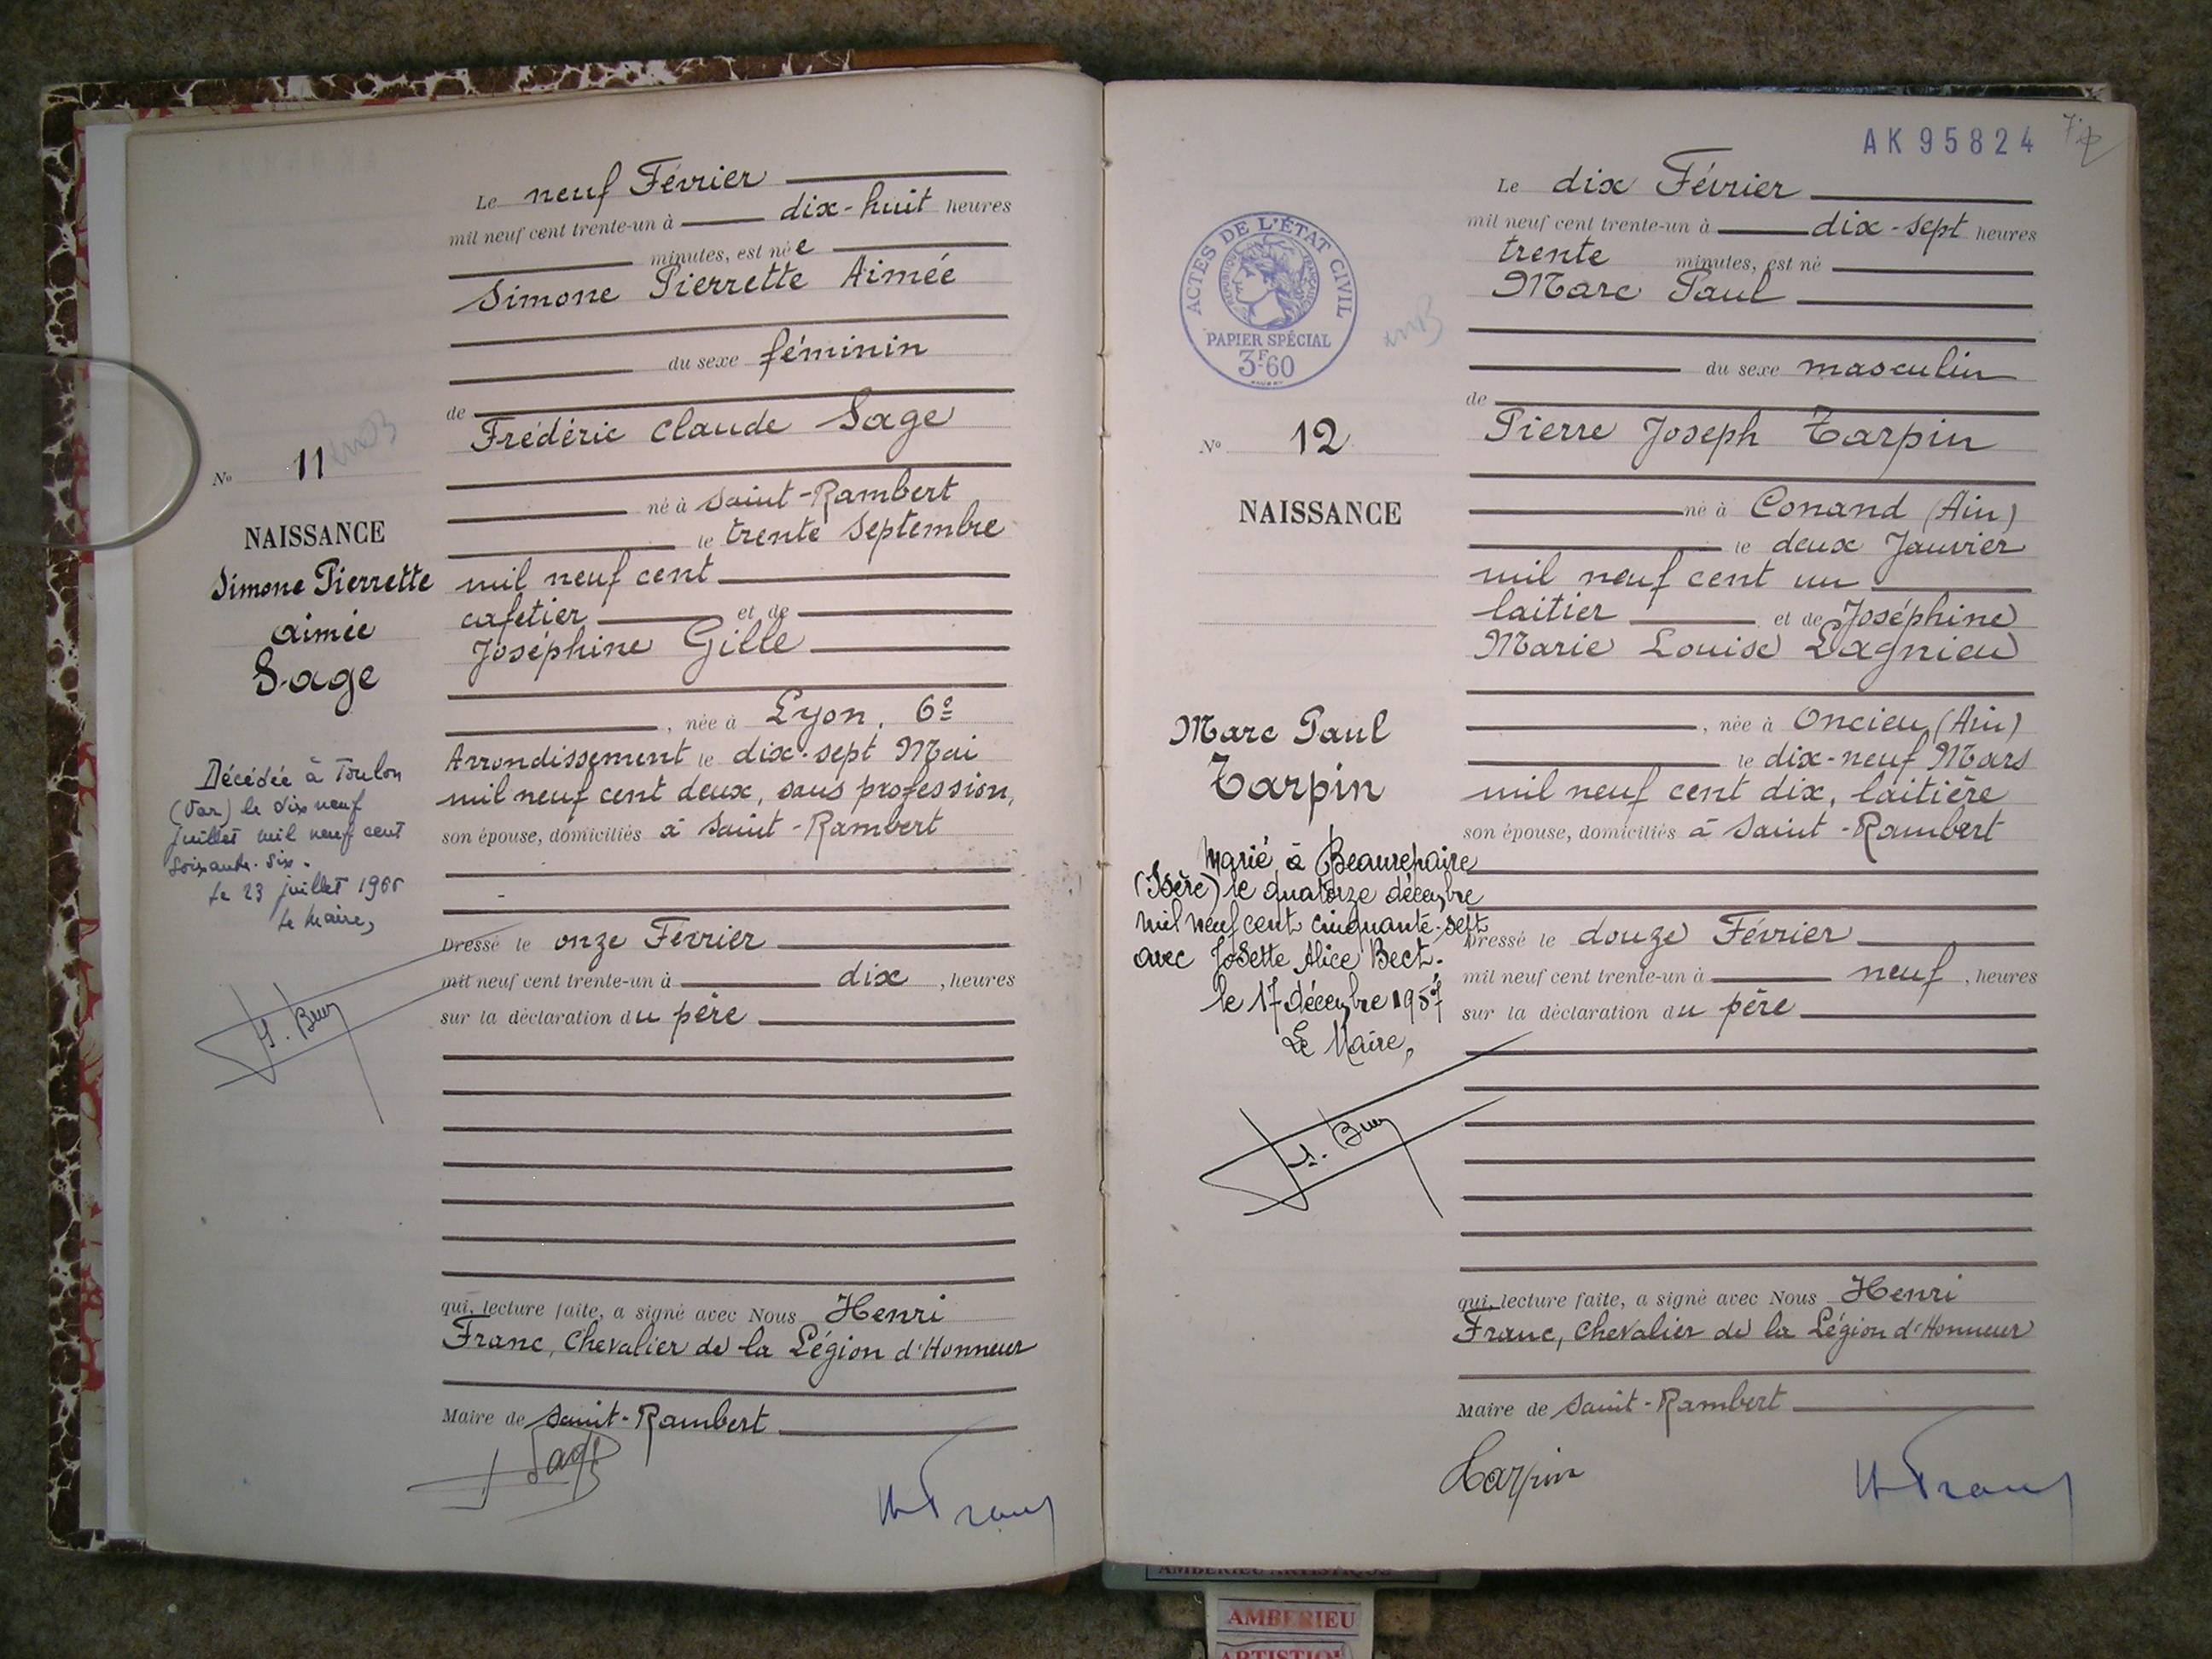 Le neuf Février
mil neuf cent trente-un à dix-huit heures
minutes, est née
Simone Pierrette Aimée
du sexe féminin
de
Frédéric Claude Sage
né à Saint-Rambert
le trente Septembre
mil neuf cent
cafetier et de
Joséphine Gille
, née à Lyon, 6e
Arrondissement le dix-sept Mai
mil neuf cent deux, sans profession,
son épouse, domiciliés à Saint-Rambert
Dressé le onze Février
mil neuf cent trente-un à dix , heures
sur la déclaration du père
qui, lecture faite, a signé avec Nous Henri
Franc, Chevalier de la Légion d'Honneur
Maire de Saint-Rambert
Sage
H Franc
No 11
NAISSANCE
Simone Pierrette
Aimée
Sage
Décédée à Toulon
(Var) le dix neuf
juillet mil neuf cent
soixante-six.
Le 23 juillet 1966
Le Maire,
AK 95824
ACTES DE L'ÉTAT CIVIL
RÉPUBLIQUE FRANÇAISE
PAPIER SPÉCIAL
3F60
No 12
NAISSANCE
Marc Paul
Tarpin
Marié à Beaurepaire
(Isère) le quatorze décembre
mil neuf cent cinquante-sept
avec Josette Alice Bect.
le 17 décembre 1957
Le Maire,
Le dix Février
mil neuf cent trente-un à dix-sept heures
trente minutes, est né
Marc Paul
du sexe masculin
de
Pierre Joseph Tarpin
né à Conand (Ain)
le deux Janvier
mil neuf cent un
laitier et de Joséphine
Marie Louise Lagnieu
, née à Oncieu (Ain)
le dix-neuf Mars
mil neuf cent dix, laitière
son épouse, domiciliés à Saint-Rambert
Dressé le douze Février
mil neuf cent trente-un à neuf , heures
sur la déclaration du père
qui, lecture faite, a signé avec Nous Henri
Franc, Chevalier de la Légion d'Honneur
Maire de Saint-Rambert
Tarpin
H Franc
AMBERIEU ARTISTIQUE
AMBERIEU